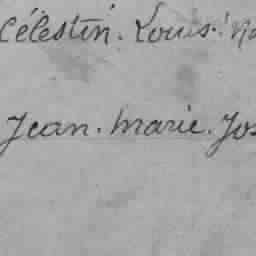 Célestin. Louis.
Jean. Marie. Jos